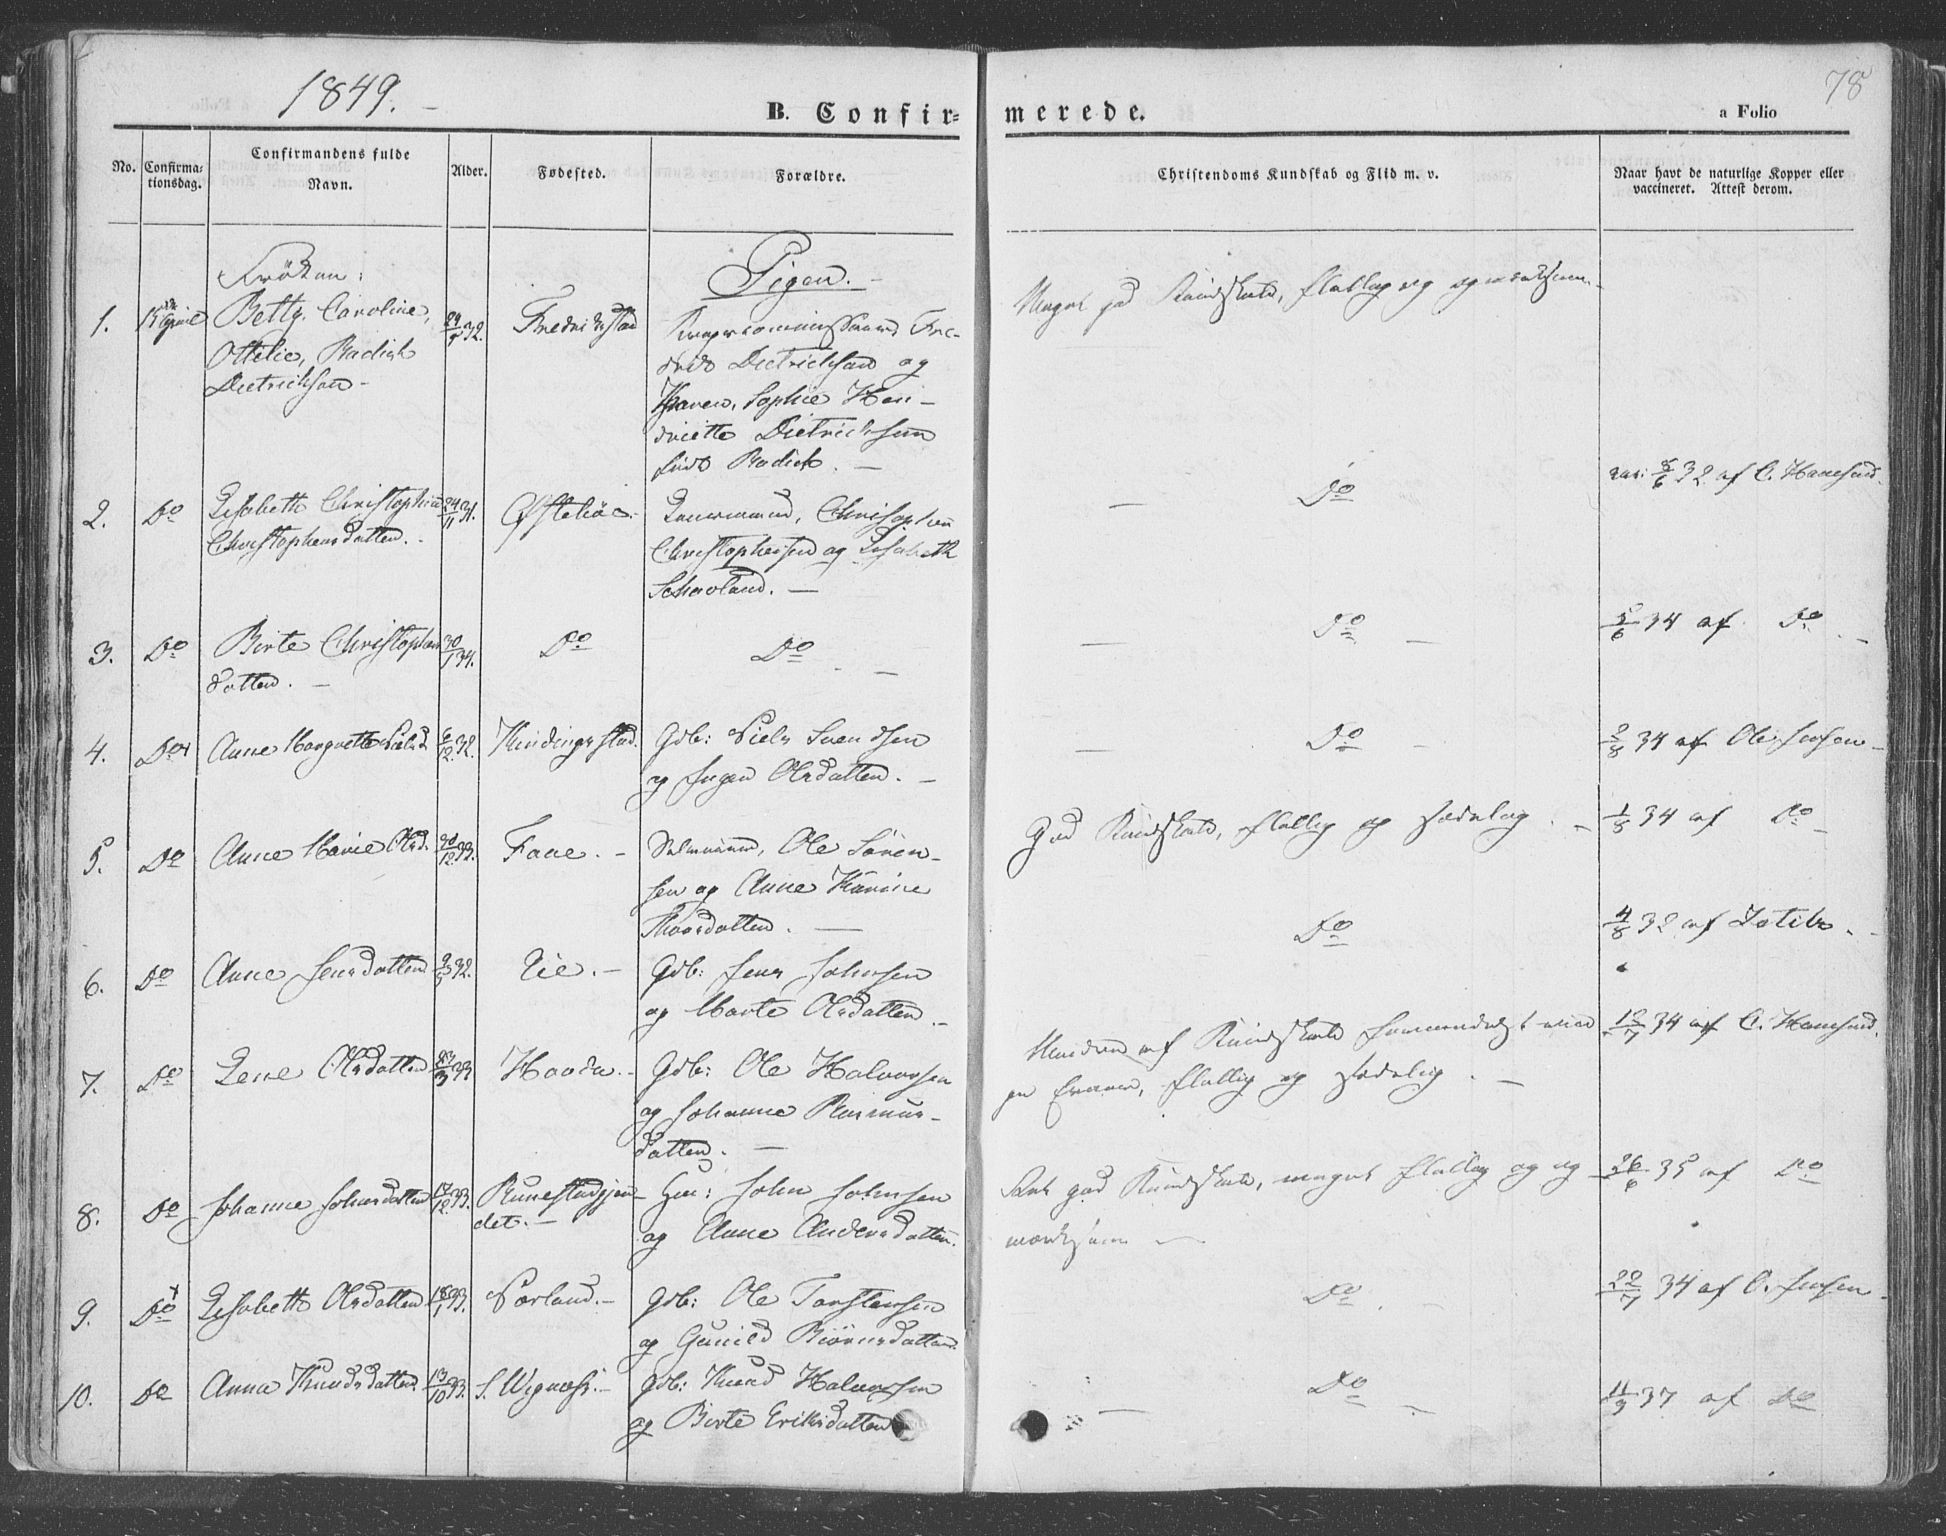 1849.
78
B. Confirmerede.
a Folio
No.
Confirmationsdag.
Confirmandens fulde Navn.
Alder.
Fødested.
Forældre.
Christendoms Kundskab og Flid m. v.
Naar havt de naturlige Kopper eller vaccineret. Attest derom.
Pigen.
Fröken:
1. 15 April Betty, Caroline, 32. Fredrikstad Krigscommissair Fre-
Ottilie, Radich drik Dietrichson og
Dietrichson Sophie Hen-
driette Dietrichson
født Radich.
Meget god Kundskab, flittig og opmærksom
2. Do Lisabeth Christophine 24/11 31. Christopher
Christophersdatter. Christophersen og Lisabeth
Schaoland.
Do
vac: 32 af C. Hanesund.
3. Do Birte Christopher 30/1 34. Do Do
datter.
Do
5/6 34 af Do
4. Do Anne Margrethe Nielsd 6/12 32. Kindingstad. Gdb: Niels Svendsen
og Inger Olsdatter.
Do
2/8 34 af Ole Jensen
5. Do Anne Marie Olsd. 33. Faae. Ole Sören-
sen og Anne Karine
Thorsdatter.
God Kundskab, flittig og sædelig.
1/8 34 af Do
6. Do Anne Jensdatter 32. Lie. Gdb: Jens Johnsen
og Marte Olsdatter.
Do
4/8 32 af
7. Do Lene Olsdatter 33 Haada. Gdb: Ole Halvorsen
og Johanne Rasmus-
datter.
Mindre af Kundskab
flittig og sædelig.
12/7 34 af C. Hanesund.
8. Do Johanne Johnsdatter 17/12 33. Runestadgjær-
det. John Johnsen
og Anne Andersdatter.
god Kundskab, meget flittig og op-
mærksom
26/6 35 af Do
9. Do Lisabeth Olsdatter 18/1 33. Sörland. Gdb: Ole Torstensen
og Gunild Biörnsdatter.
Do
22/7 34 af O. Jensen
10. Do Anna Knudsdatter. 13/10 33. S. Wignæs. Gdb: Knud Halvorsen
og Birte Eriksdatter
Do
11/9 37 af Do